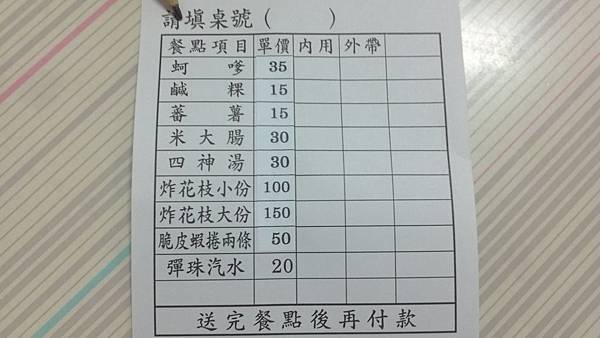 請填桌號( )
餐點項目 單價 內用 外帶
蚵嗲 35
鹹粿 15
蕃薯 15
米大腸 30
四神湯 30
炸花枝小份 100
炸花枝大份 150
脆皮蝦捲兩條 50
彈珠汽水 20
送完餐點後再付款